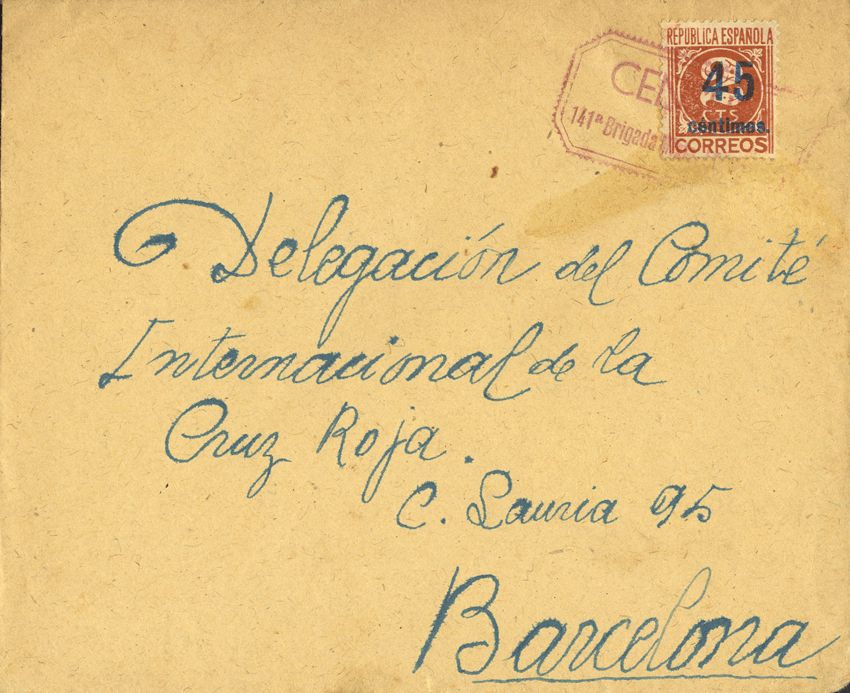 REPÚBLICA ESPAÑOLA
45
CTS
céntimos.
CORREOS
141ª Brigada
Delegación del Comité
Internacional de la
Cruz Roja.
C. Lauria 95
Barcelona